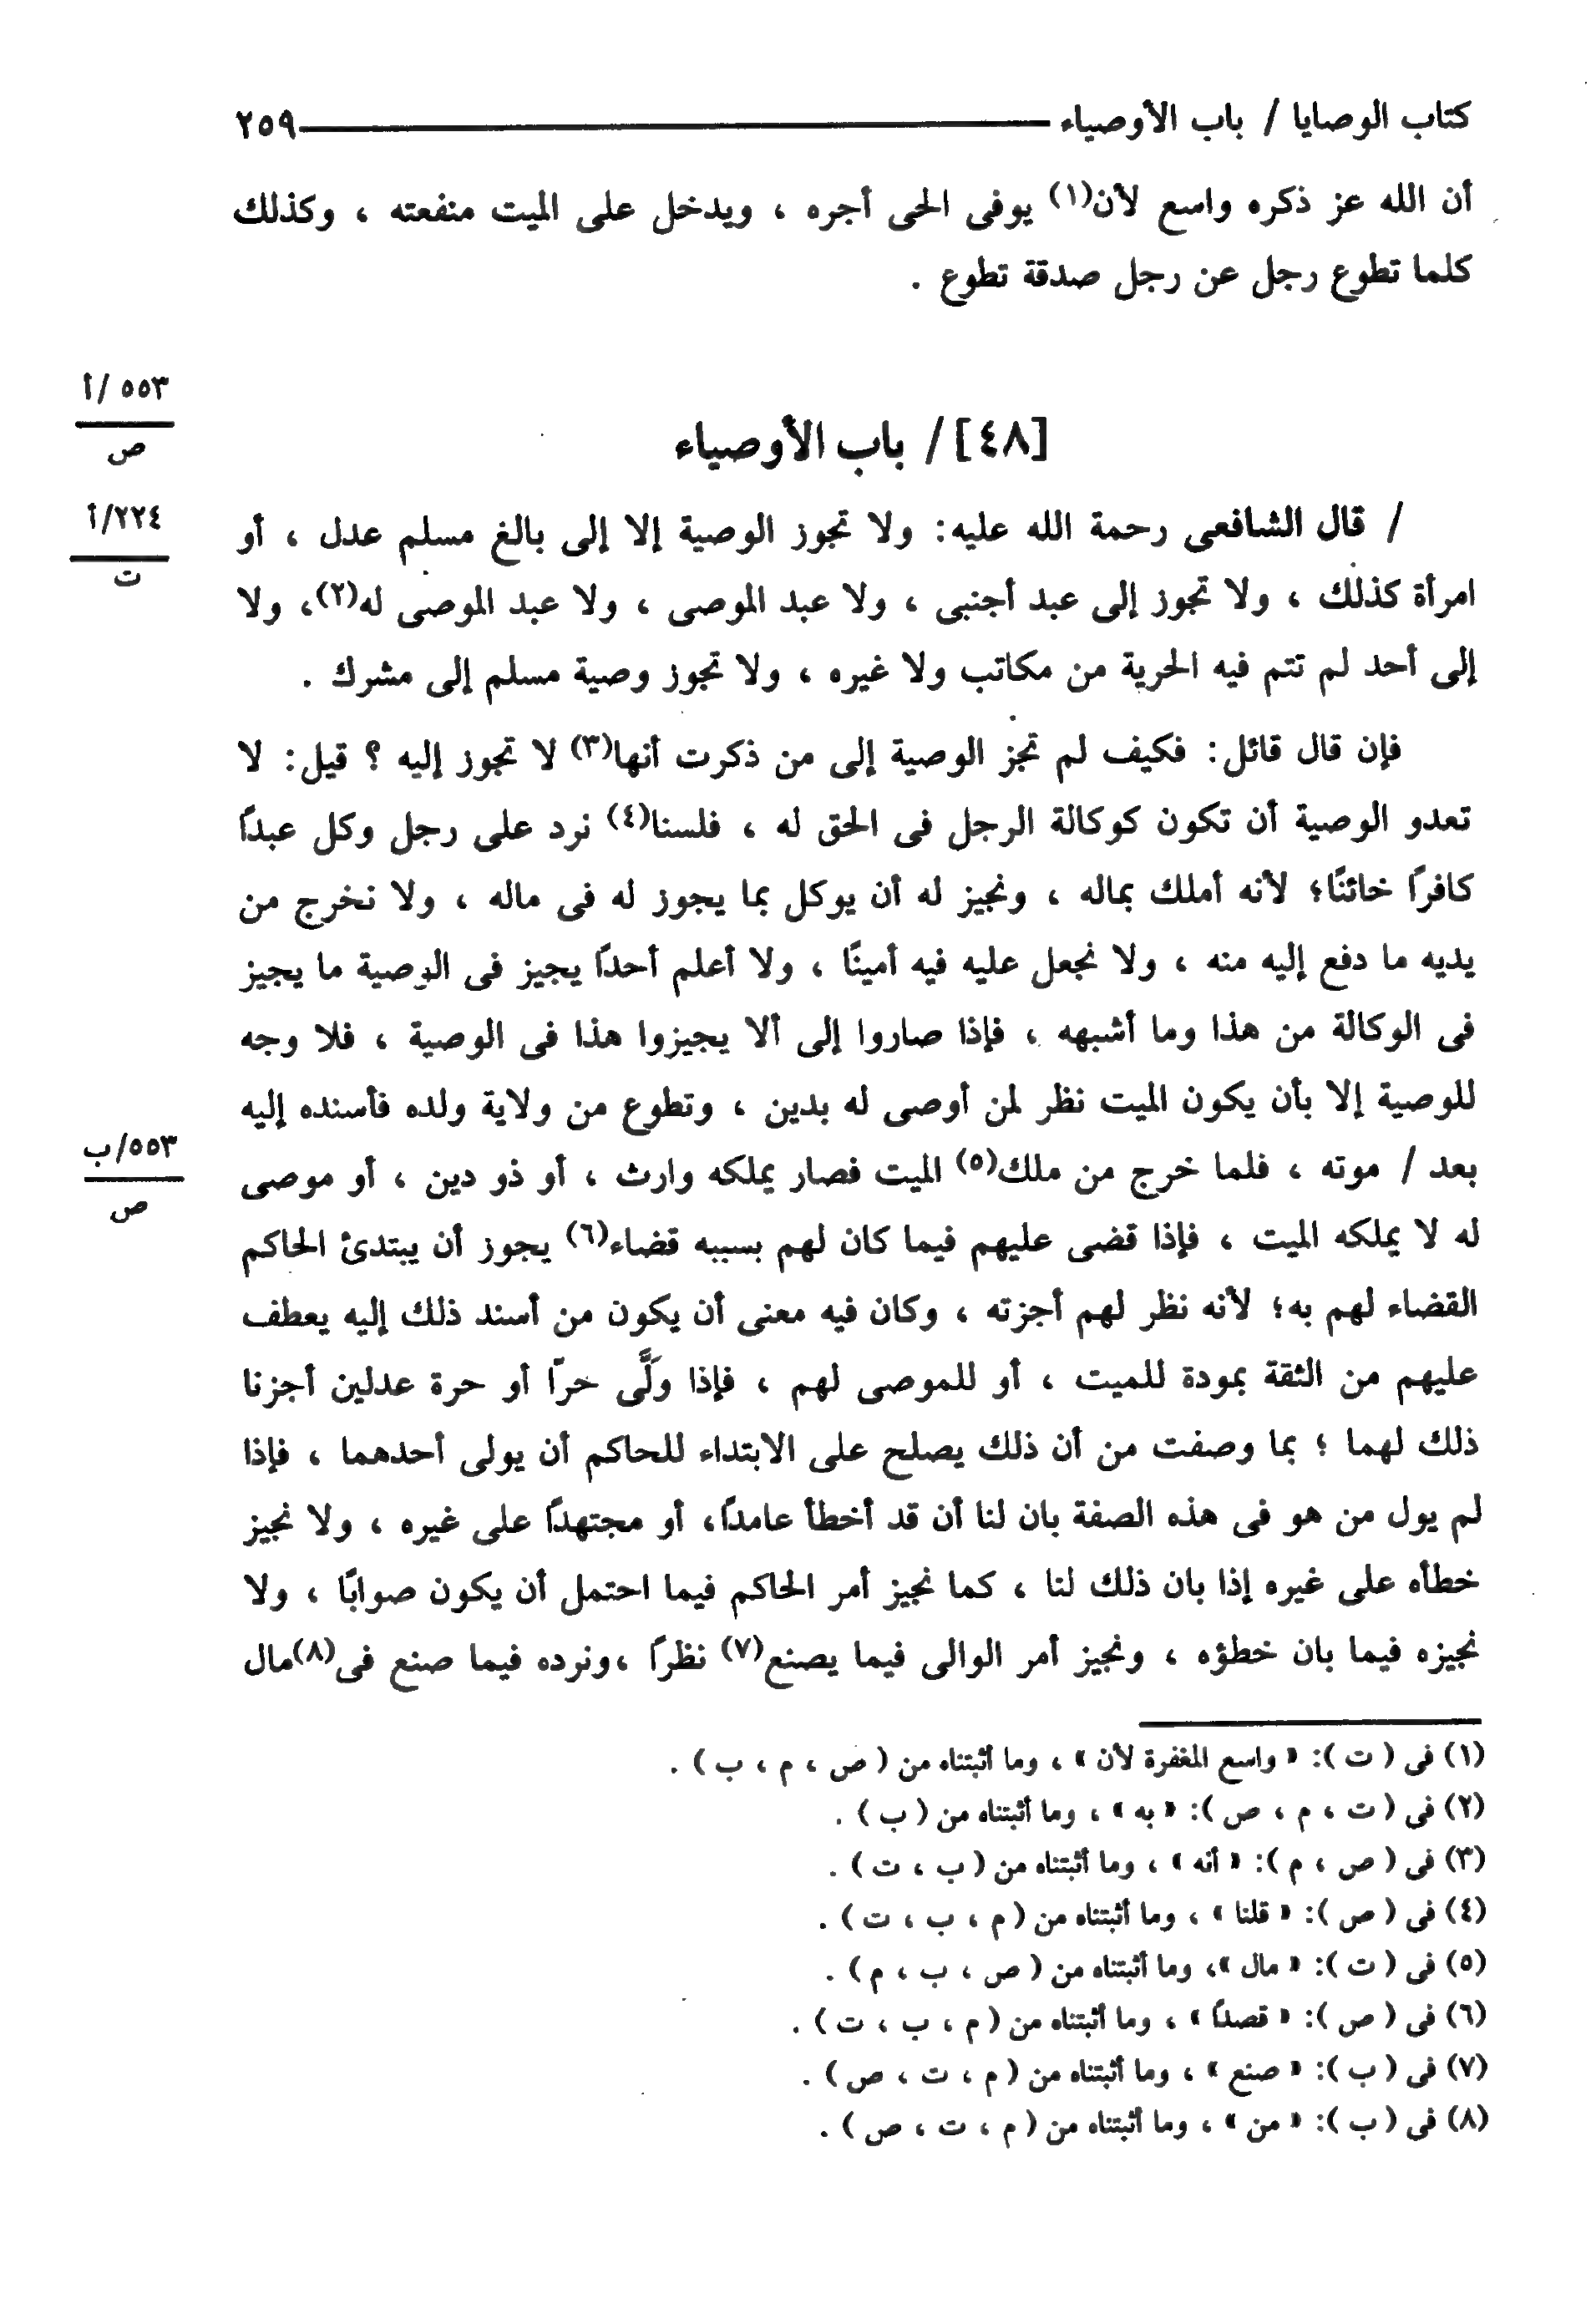 كتاب الوصايا / باب الأوصياء ٢٥٩
أن الله عز ذكره واسع لأن(١) يوفى الحى أجره ، ويدخل على الميت منفعته ، وكذلك
كلما تطوع رجل عن رجل صدقة تطوع .
٥٥٣ /أ
ص
[٤٨] / باب الأوصياء
٢٢٤/أ
ت
/ قال الشافعى رحمة الله عليه: ولا تجوز الوصية إلا إلى بالغ مسلم عدل ، أو
امرأة كذلك ، ولا تجوز إلى عبد أجنبى ، ولا عبد الموصى ، ولا عبد الموصى له(٢)، ولا
إلى أحد لم تتم فيه الحرية من مكاتب ولا غيره ، ولا تجوز وصية مسلم إلى مشرك .
فإن قال قائل: فكيف لم تجز الوصية إلى من ذكرت أنها(٣) لا تجوز إليه ؟ قيل: لا
تعدو الوصية أن تكون كوكالة الرجل فى الحق له ، فلسنا(٤) نرد على رجل وكل عبدًا
كافرًا خائنًا؛ لأنه أملك بماله ، ونجيز له أن يوكل بما يجوز له فى ماله ، ولا نخرج من
يديه ما دفع إليه منه ، ولا نجعل عليه فيه أمينًا ، ولا أعلم أحدًا يجيز فى الوصية ما يجيز
فى الوكالة من هذا وما أشبهه ، فإذا صاروا إلى ألا يجيزوا هذا فى الوصية ، فلا وجه
للوصية إلا بأن يكون الميت نظر لمن أوصى له بدين ، وتطوع من ولاية ولده فأسنده إليه
بعد / موته ، فلما خرج من ملك(٥) الميت فصار يملكه وارث ، أو ذو دين ، أو موصى
٥٥٣/ب
ص
له لا يملكه الميت ، فإذا قضى عليهم فيما كان لهم بسببه قضاء(٦) يجوز أن يبتدئ الحاكم
القضاء لهم به؛ لأنه نظر لهم أجزته ، وكان فيه معنى أن يكون من أسند ذلك إليه يعطف
عليهم من الثقة بمودة للميت ، أو للموصى لهم ، فإذا ولَّى حرّا أو حرة عدلين أجزنا
ذلك لهما ؛ بما وصفت من أن ذلك يصلح على الابتداء للحاكم أن يولى أحدهما ، فإذا
لم يول من هو فى هذه الصفة بان لنا أن قد أخطأ عامدًا، أو مجتهدًا على غيره ، ولا نجيز
خطأه على غيره إذا بان ذلك لنا ، كما نجيز أمر الحاكم فيما احتمل أن يكون صوابًا ، ولا
نجيزه فيما بان خطؤه ، ونجيز أمر الوالى فيما يصنع(٧) نظرًا ،ونرده فيما صنع فى(٨)مال
(١) فى ( ت ): « واسع المغفرة لأن » ، وما أثبتناه من ( ص ، م ، ب ) .
(٢) فى ( ت ، م ، ص ): « به » ، وما أثبتناه من ( ب ) .
(٣) فى ( ص ، م ): « أنه » ، وما أثبتناه من ( ب ، ت ) .
(٤) فى ( ص ): « قلنا » ، وما أثبتناه من ( م ، ب ، ت ) .
(٥) فى ( ت ): « مال »، وما أثبتناه من ( ص ، ب ، م ) .
(٦) فى ( ص ): « قصدًا » ، وما أثبتناه من ( م ، ب ، ت ) .
(٧) فى ( ب ): « صنع » ، وما أثبتناه من ( م ، ت ، ص ) .
(٨) فى ( ب ): « من » ، وما أثبتناه من ( م ، ت ، ص ) .